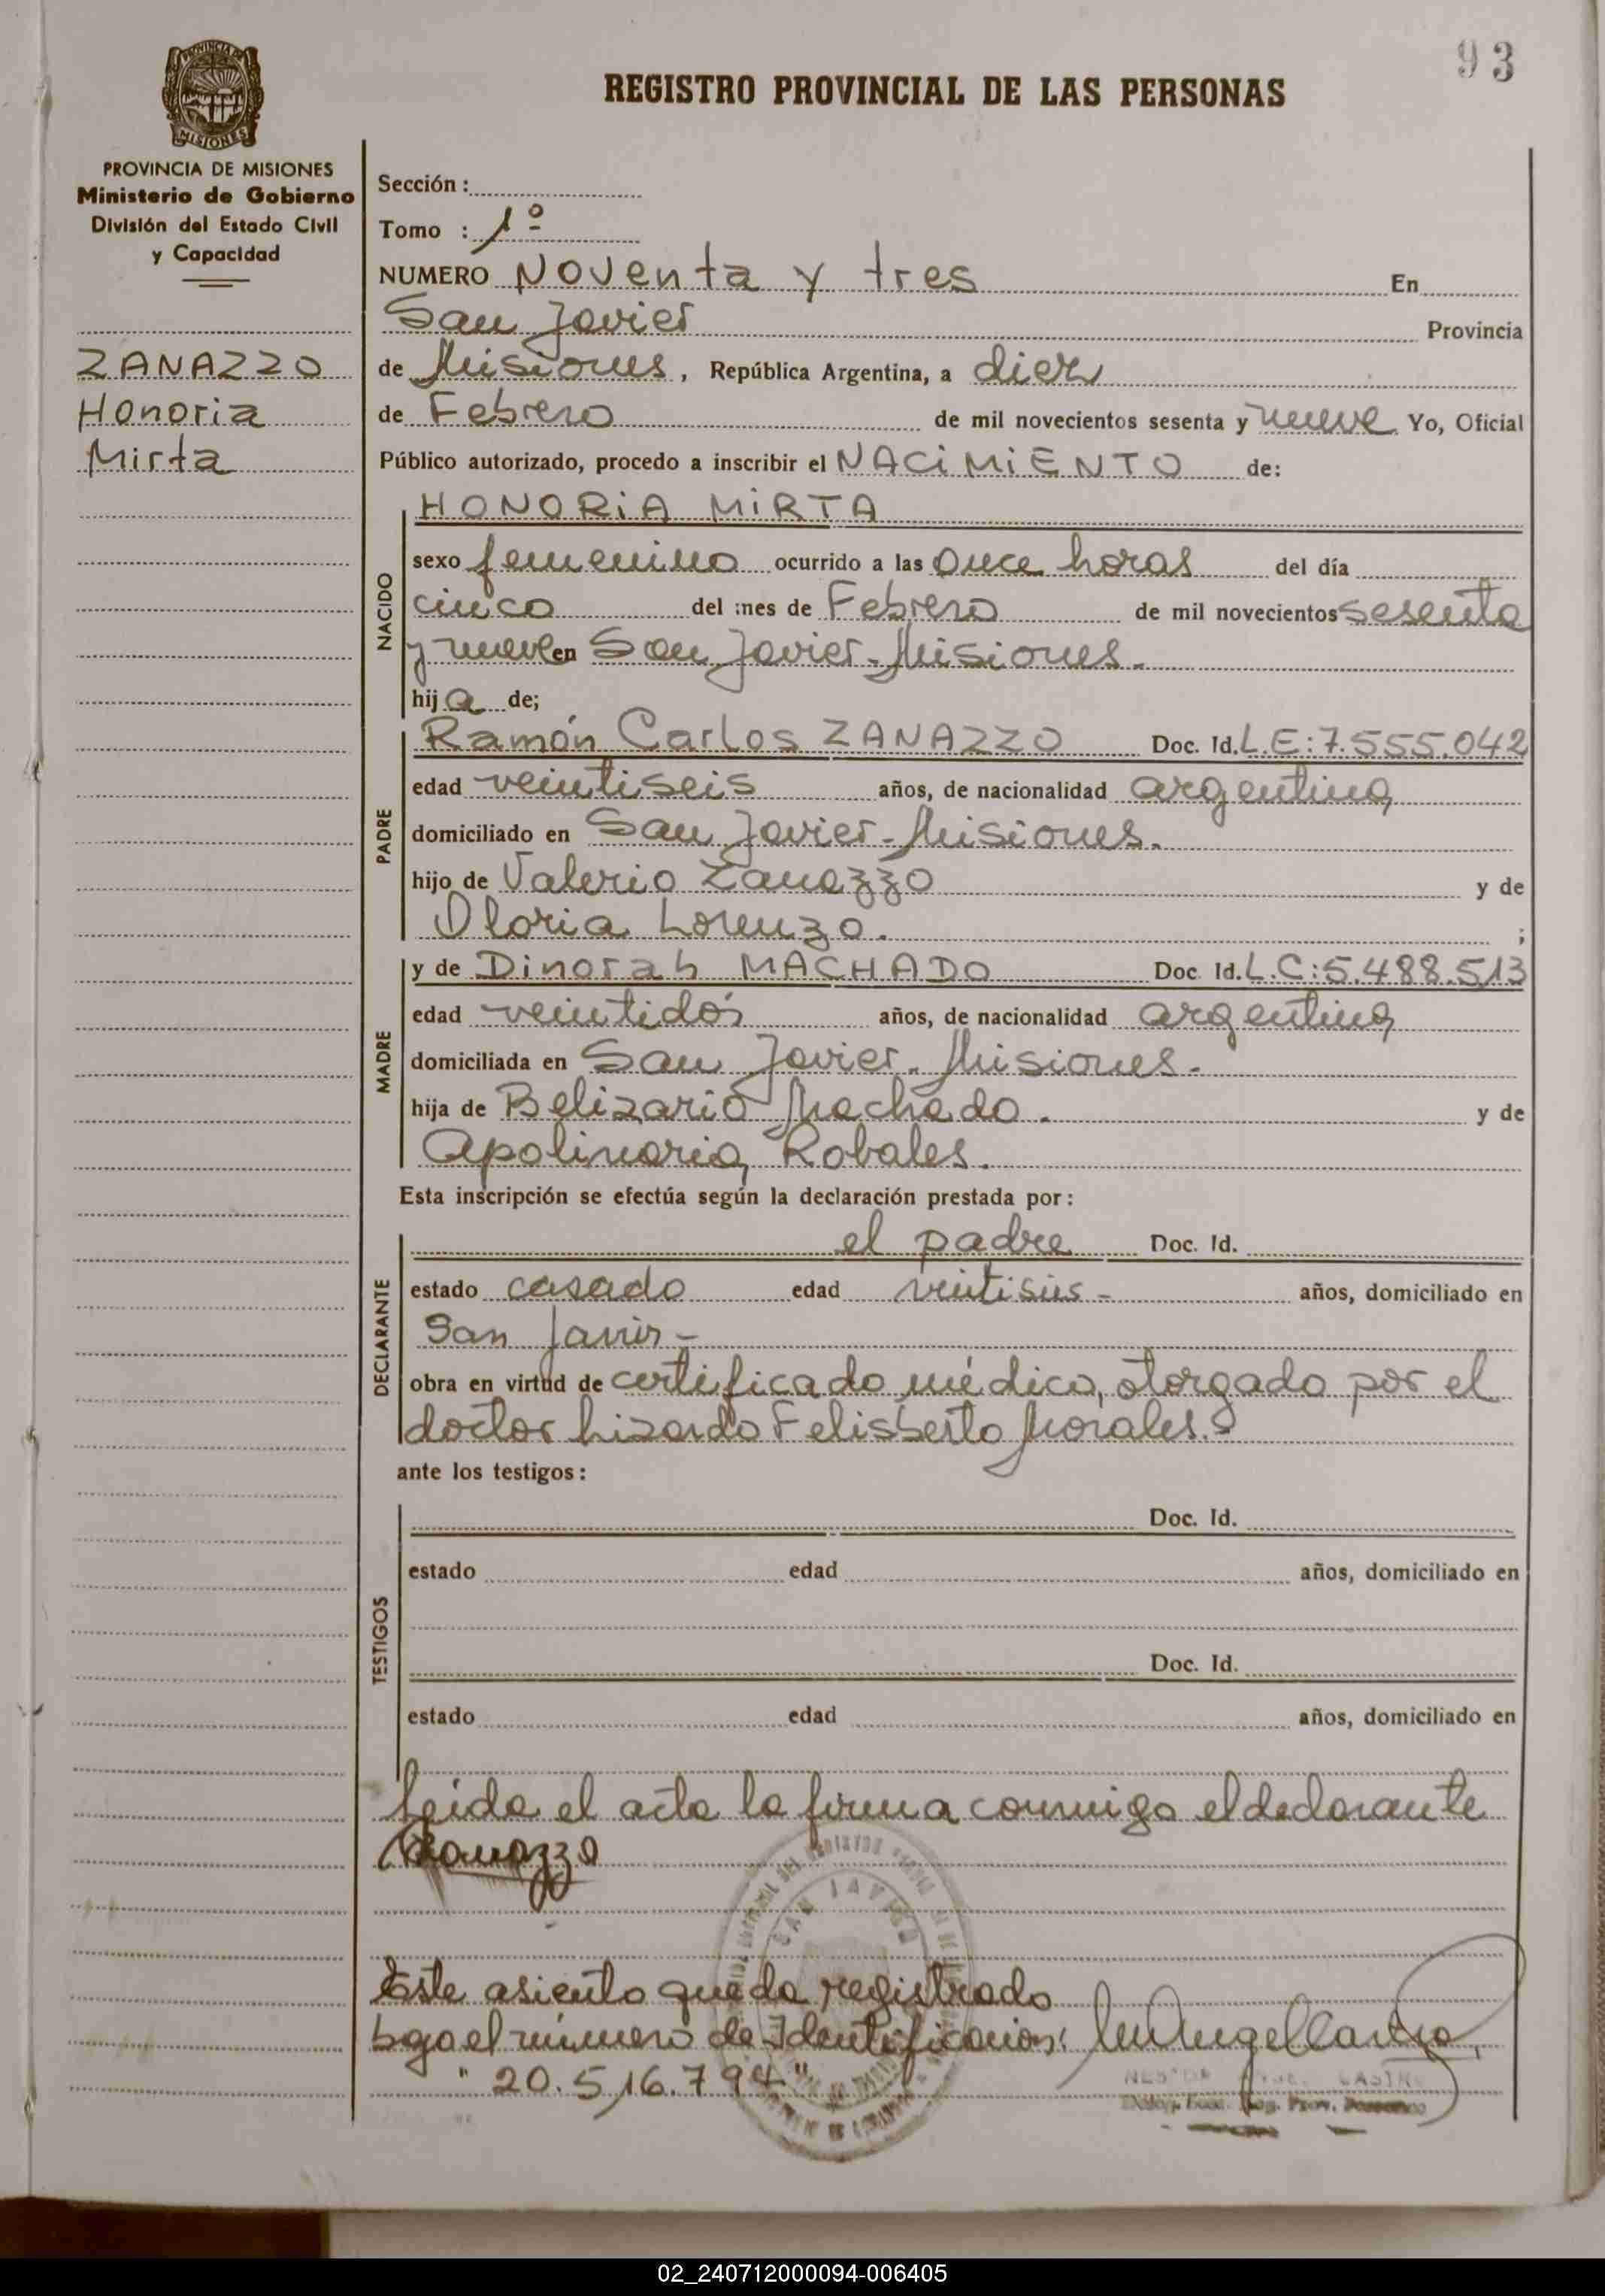 93
PROVINCIA DE
MISIONES
REGISTRO PROVINCIAL DE LAS PERSONAS
PROVINCIA DE MISIONES
Ministerio de Gobierno
División del Estado Civil
y Capacidad
ZANAZZO
Honoria
Mirta
Sección :
Tomo : 1º
NUMERO Noventa y tres En
San Javier Provincia
de Misiones, República Argentina, a diez
de Febrero de mil novecientos sesenta y nueve Yo, Oficial
Público autorizado, procedo a inscribir el NACIMIENTO de:
HONORIA MIRTA
NACIDO
sexo femenino ocurrido a las once horas del día
cinco del mes de Febrero de mil novecientos sesenta
y nueve en San Javier-Misiones.
hija de;
PADRE
Ramón Carlos ZANAZZO Doc. Id. L.E:7.555.042
edad veintiseis años, de nacionalidad argentina
domiciliado en San Javier-Misiones.
hijo de Valerio Zanazzo y de
Lorenzo. ;
MADRE
y de Dinorah MACHADO Doc. Id. L.C:5.488.513
edad veintidós años, de nacionalidad argentina
domiciliada en San Javier-Misiones.
hija de Belizario Machado. y de
Apolinaria Robales.
Esta inscripción se efectúa según la declaración prestada por:
DECLARANTE
el padre Doc. Id.
estado casado edad veintiseis - años, domiciliado en
San Javier -
obra en virtud de certificado médico, otorgado por el
doctor Lizardo Felisberto Morales.
ante los testigos:
TESTIGOS
Doc. Id.
estado edad años, domiciliado en
Doc. Id.
estado edad años, domiciliado en
Leida el acta la firma conmigo el declarante
Zanazzo
SAN JAVIER
Este asiento queda registrado
bajo el número de Identificacion:
"20.516.794"
02_240712000094-006405